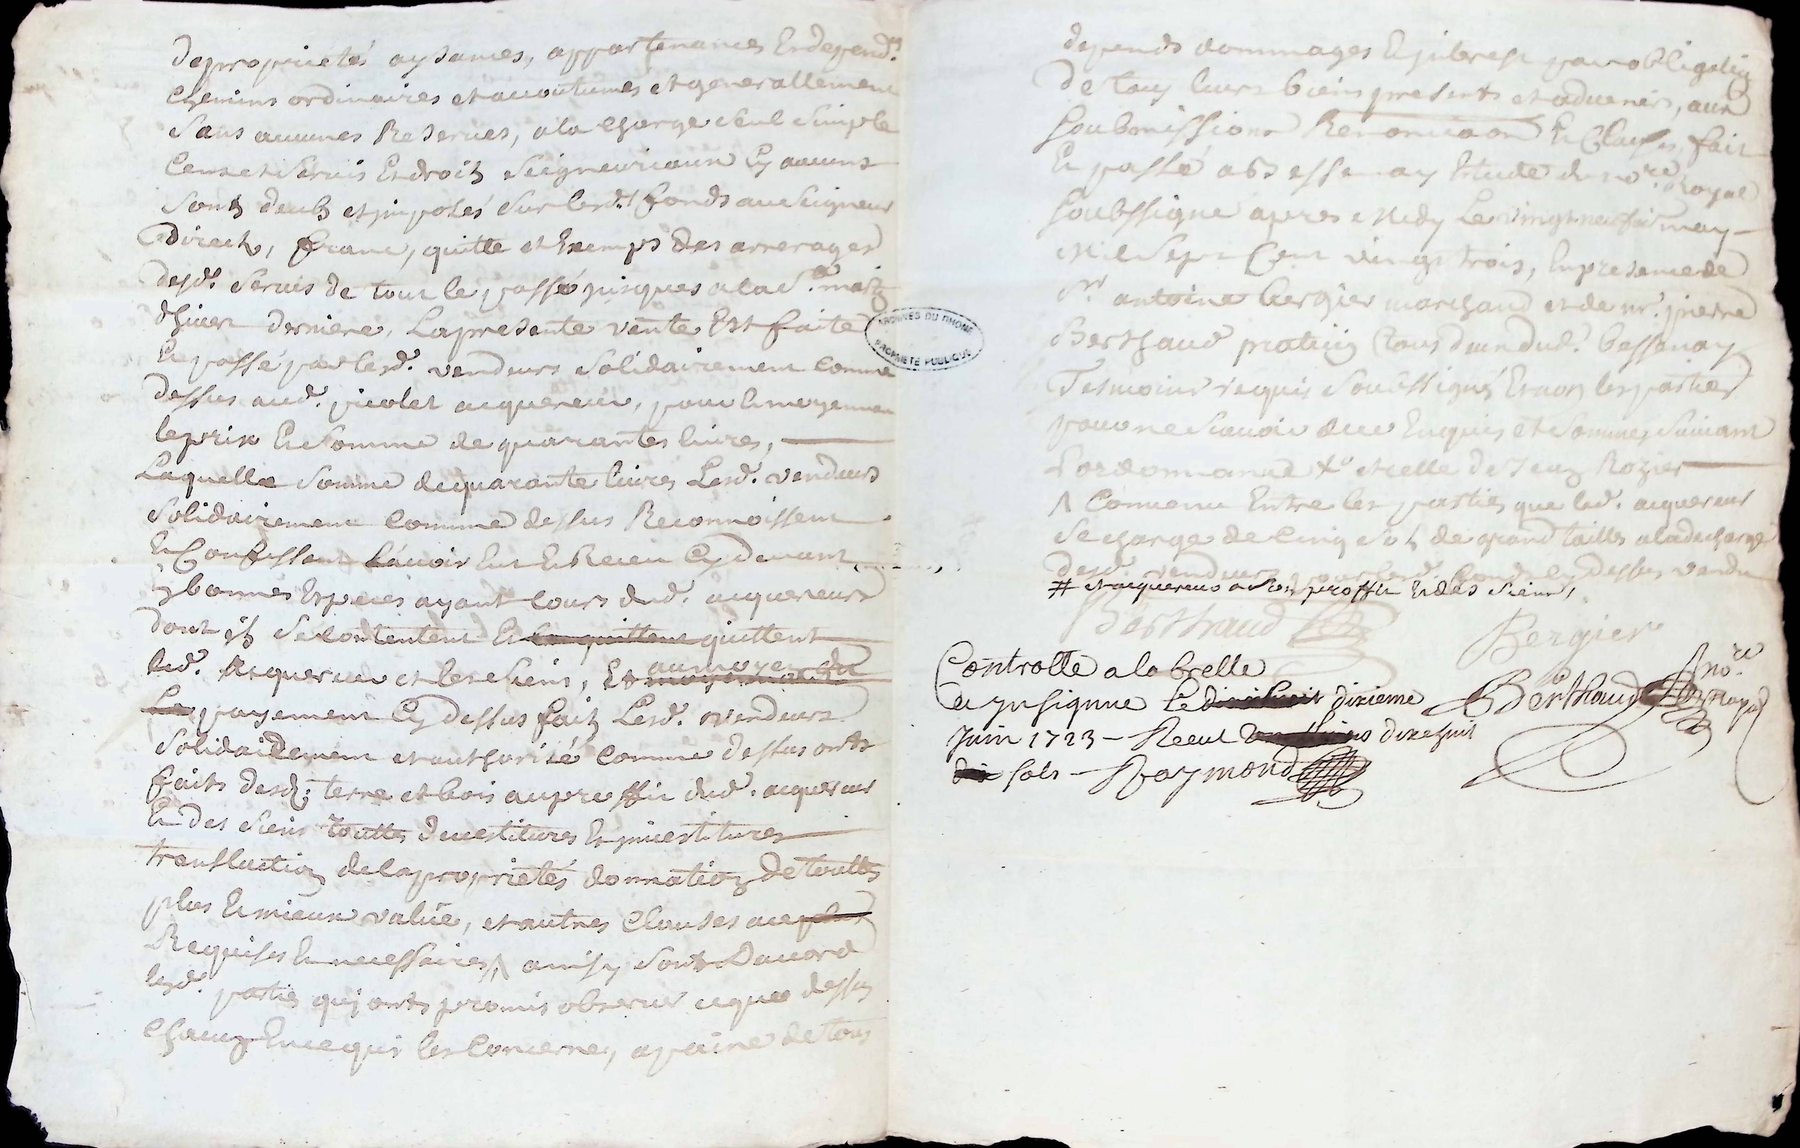 de proprietés aysances, appartenances Et depend.ces
Chemins ordinaires et accoutumés et generallement
Sans aucunes Reserves, a la Charge seul Simple
Cens et Servis Et droits Seigneuriaux Sy aucuns
Sont deubs et imposés Sur lesd.t fonds au Seigneur
Direct, franc, quitte et Exemps des arrerages
desd. Servis de tout le passé jusques a la S.t martin
d'hiver derniere, La presente vente Est faite
Et passé par lesd. vendeurs Solidairement Comme
dessus aud. picolet acquereur, pour Et moyennant
le prix Et Somme de quarantes livres,
Laquelle Somme de quarante livres Lesd. vendeurs
Solidairement Comme dessus Reconnoissent
Et Confessent Lavoir Eut Et Receu Cy devant
En bonnes Especes ayant Cours dud. acquereur
Dont ils Se Contentent Et En quittent quittent
led. Acquereur et les Siens, Et moyennant au moyen du
Le payement Cy dessus fait Lesd. vendeurs
Solidairement et authorisé Comme dessus onts
faits desd. terre et bois au proffit dud. acquereur
Et des Siens touttes devestitures Et investitures
translation de la proprietés donnation de touttes
plus Et mieux value, et autres Clauses au plus
Requises Et necessaires, /\ ainsy Sont D'accord
lesd. parties qui onts promis observer ce que dessus
Chacun En ce qui les Concerne, a paine de tous
depends dommages Et jnterest par obligation
De tous leurs biens presents et advenirs, aux
Soubmissions Renonciaon Et Clauses, fait
Et passé a Bessenay Etude du no.re Royal
Soubssigne apres Midy Le vingt neuf may
Mil Sept Cent vingt trois, En presence de
S.r antoine bergier marchand et de m.r pierre
Berthaud praticien tous deux dud. bessenay
Tesmoins requis Soussignés Et non les parties
pour ne Scavoir de ce Enquis et Sommes Suivant
L'ordonnance et celle de Jean Rozier
/\ Convenu Entre les parties que led. acquereur
Se charge de Cinq Sols de grand tailles a la decharge
desd. vendeurs dessus vendu
# et acquereur a Son proffit Et des Siens,
Berthaud Bergier
Controlle a la brelle
ce jnsignue Le dixième
Juin 1723 - Receu dixehuit
dix sols - Raymond
Berthaud no.re royal
ARCHIVES DU RHONE
PROPRIETE PUBLIQUE